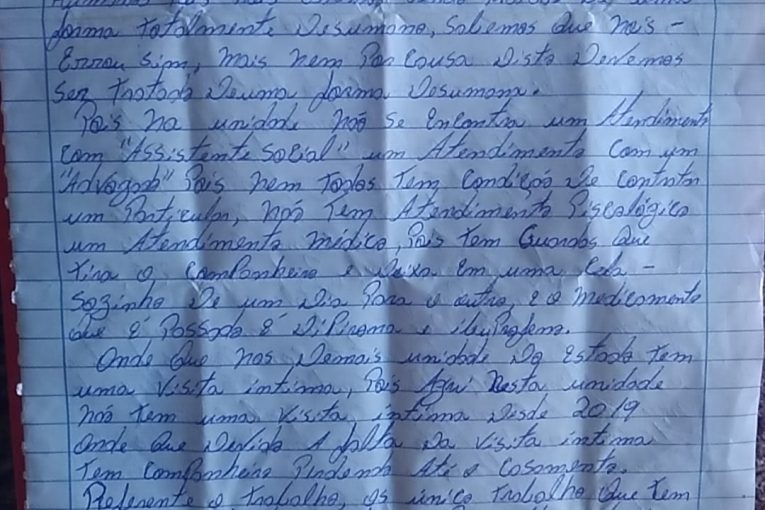 forma totalmente Desumana, Sabemos Que nois -
Errou Sim, mais nem Por Cousa Disto Devemos
Ser tratado Deuma forma Desumana.
Pois na unidade não Se Encontra um Atendimento
Com "Assistente Social" um Atendimento Com um
"Advogado" Pois nem todos tem Condição De Contratar
um Particular, não tem Atendimento Piscologico
um Atendimento médico, Pois tem Guardas Que
tira o Companheiro e Deixa Em uma Cela -
Sozinho De um Dia Para o outro, e o Medicamento
Que é Passado é Dipirona e ibuprofeno.
Onde Que nas Demais unidade Do Estado tem
uma Visita intima, Pois Aqui Nesta unidade
não tem uma Visita intima Desde 2019
Onde Que Devido A falta Da Visita intima
Tem Companheiro Perdendo Até o Casamento.
Referente o trabalho, os único trabalho Que tem